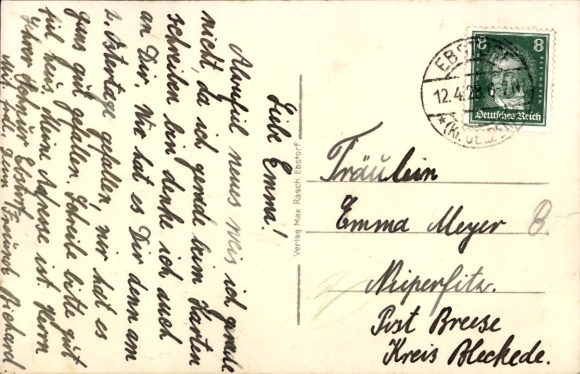 Liebe Emma!
Absofiel neues weis ich gerade
nicht, da ich gerade beim Karten
schreiben bin denke ich auch
an Dir. Wie hat es Dir denn am
2. Ostertage gefallen, mir hat es
ganz gut gefallen. Schreibe bitte gut
fiel heis, Meine Adresse ist. Herrn
Ebstorf
Dein Freund Richard
Verlag Max Rasch Ebstorf
8 8
BEETHOVEN
Deutsches Reich
EBSTORF
12.4.28.6-7N
Fräulein
Emma Meyer B.
Nieperfitz.
Post Breese
Kreis Bleckede.